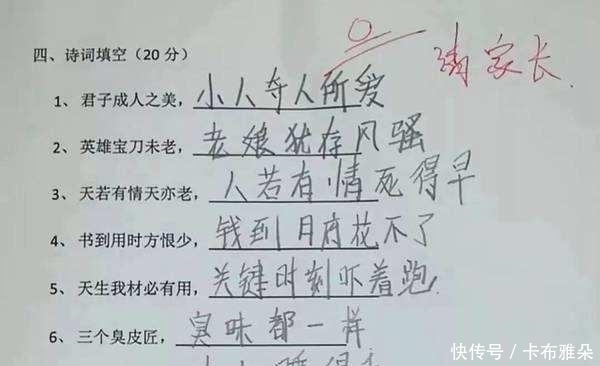 四、诗词填空（20 分） 0 请家长
1、 君子成人之美，小人夺人所爱
2、 英雄宝刀未老，老娘犹存风骚
3、 天若有情天亦老，人若有情死得早
4、 书到用时方恨少，钱到月府花不了
5、 天生我材必有用，关键时刻吓着跑
6、 三个臭皮匠，臭味都一样
快传号／卡布雅朵